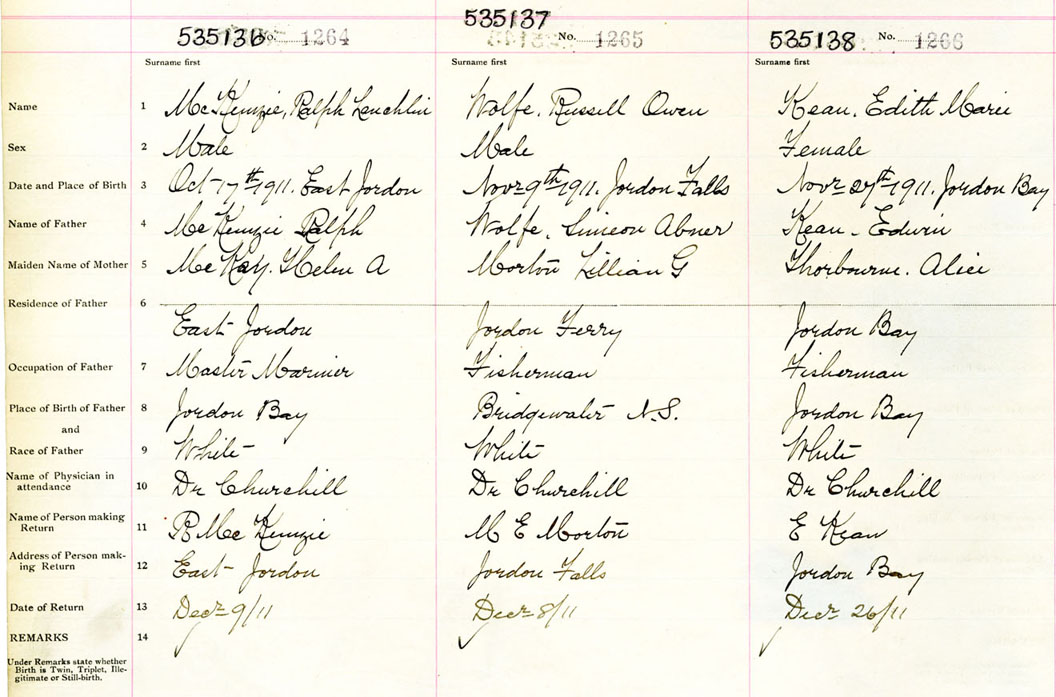 535136 No. 1264 535137 No. 1265 535138 No. 1266
Surname first Surname first Surname first
Name 1 McKenzie, Ralph Lauchlin Wolfe, Russell Owen Kean, Edith Marie
Sex 2 Male Male Female
Date and Place of Birth 3 Oct 17th 1911. East Jordon Novr 9th 1911. Jordon Falls Novr 27th 1911. Jordon Bay
Name of Father 4 McKenzie Ralph Wolfe, Simeon Abner Kean - Edwin
Maiden Name of Mother 5 McKay. Helen A Morton Lillian G Thorbourne. Alice
Residence of Father 6
East Jordon Jordon Ferry Jordon Bay
Occupation of Father 7 Master Mariner Fisherman Fisherman
Place of Birth of Father 8 Jordon Bay Bridgewater N.S. Jordon Bay
and
Race of Father 9 White White White
Name of Physician in
attendance 10 Dr Churchill Dr Churchill Dr Churchill
Name of Person making
Return 11 R McKenzie M E Morton E Kean
Address of Person mak-
ing Return 12 East Jordon Jordon Falls Jordon Bay
Date of Return 13 Decr 9/11 Decr 8/11 Decr 26/11
REMARKS 14
Under Remarks state whether
Birth is Twin, Triplet, Ille-
gitimate or Still-birth.